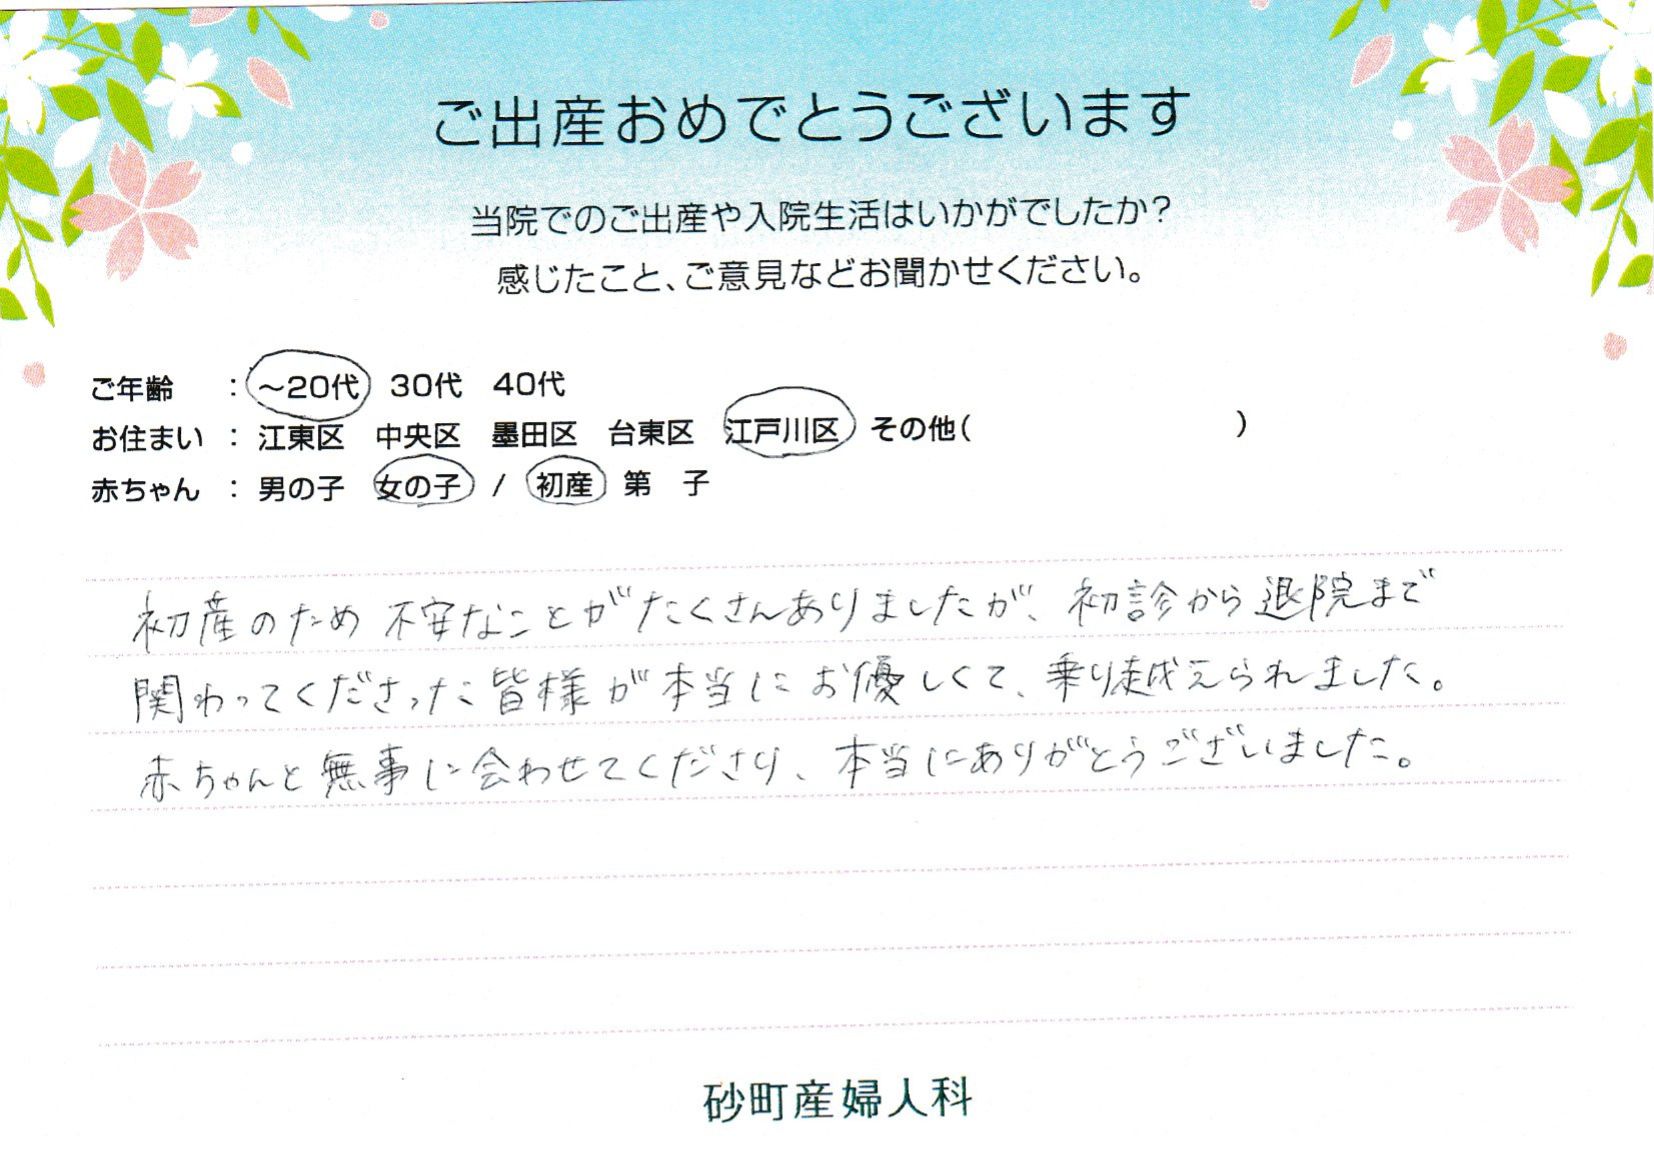 ご出産おめでとうございます
当院でのご出産や入院生活はいかがでしたか?
感じたこと、ご意見などお聞かせください。
ご年齢 : ～20代 30代 40代
お住まい : 江東区 中央区 墨田区 台東区 江戸川区 その他( )
赤ちゃん : 男の子 女の子 / 初産 第 子
初産のため不安なことがたくさんありましたが、初診から退院まで
関わってくださった皆様が本当にお優しくて、乗り越えられました。
赤ちゃんと無事に会わせてくださり、本当にありがとうございました。
砂町産婦人科